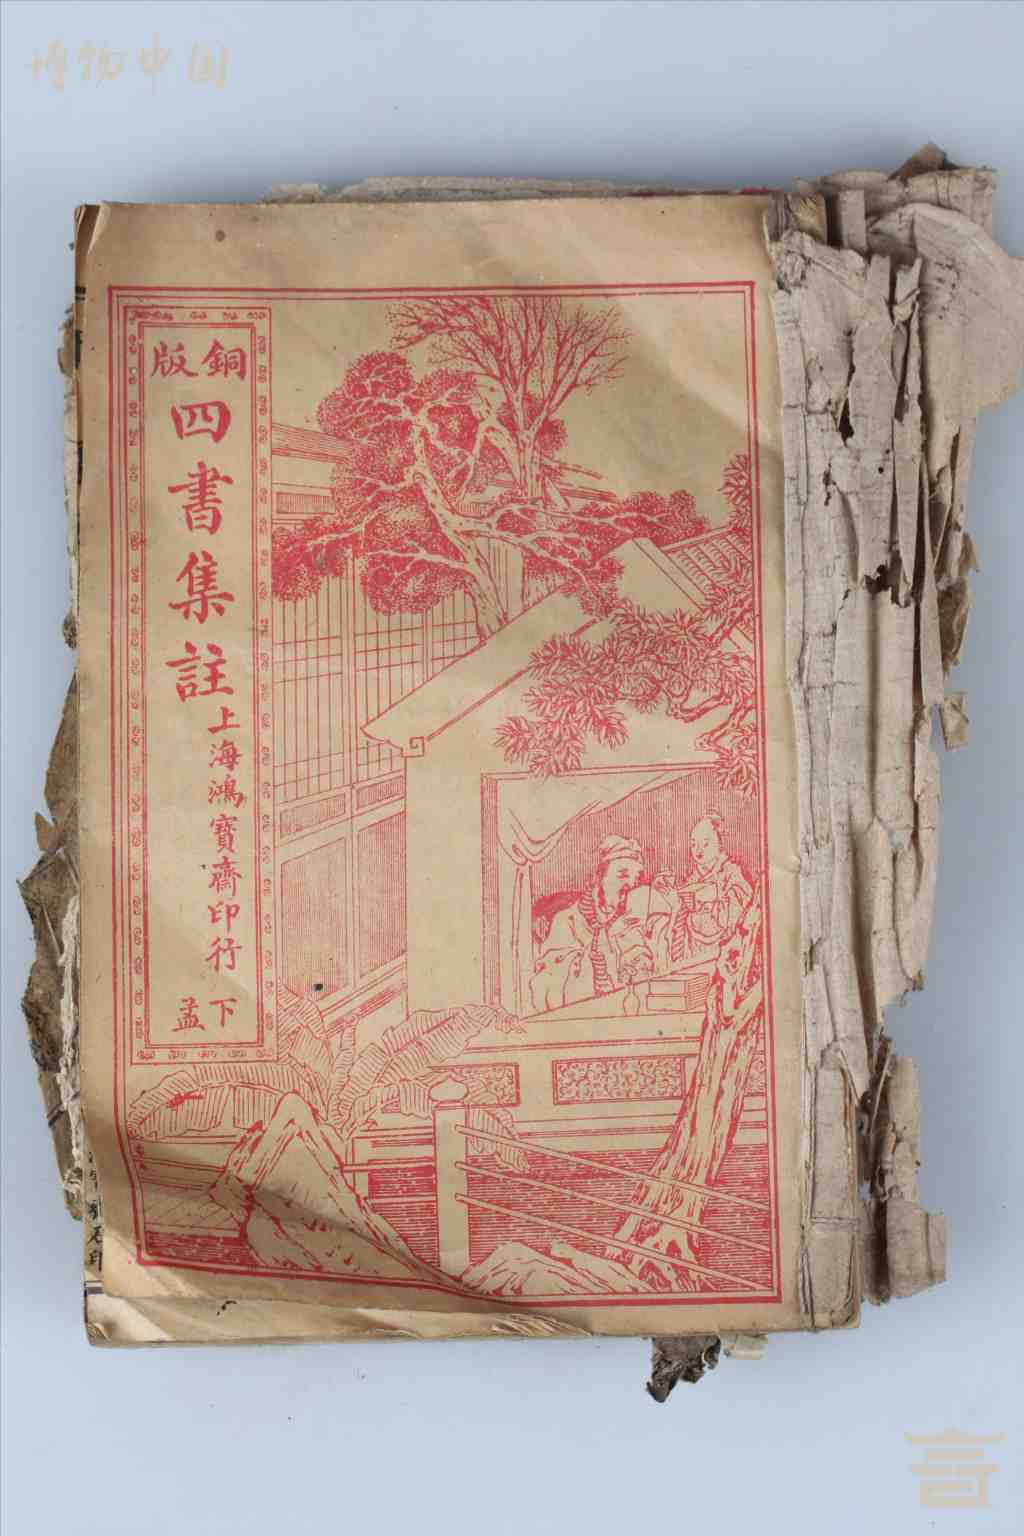 博物中国
銅版
四書集註
上海鴻寶齋印行
下孟
石印